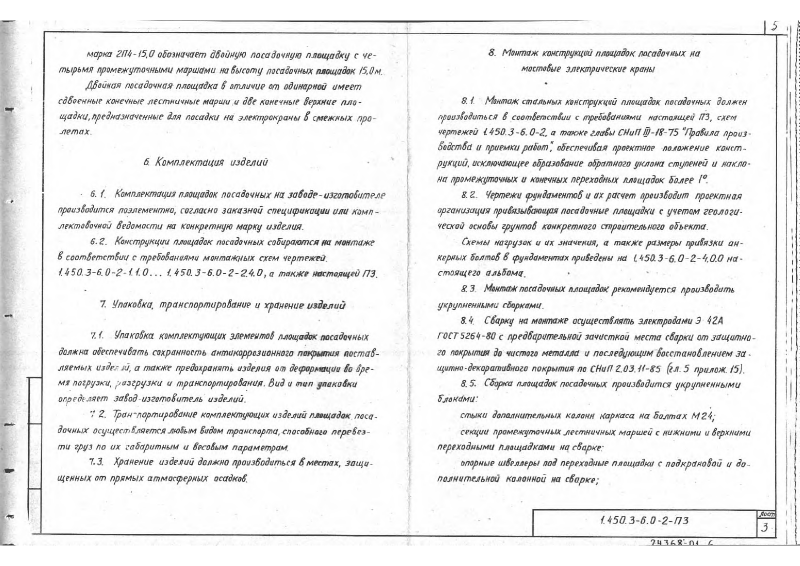 5
марка 2П4-15,0 обозначает двойную посадочную площадку с че-
тырьмя промежуточными маршами на высоту посадочных площадок 15,0м.
Двойная посадочная площадка в отличие от одинарной имеет
сдвоенные конечные лестничные марши и две конечные верхние пло-
щадки, предназначенные для посадки на электрокраны в смежных про-
летах.
6. Комплектация изделий
6.1. Комплектация площадок посадочных на заводе-изготовителе
производится поэлементно, согласно заказной спецификации или комп-
лектовочной ведомости на конкретную марку изделия.
6.2. Конструкции площадок посадочных собираются на монтаже
в соответствии с требованиями монтажных схем чертежей.
1.450.3-6.0-2-1.1.0... 1.450.3-6.0-2-2.4.0, а также настоящей ПЗ.
7. Упаковка, транспортирование и хранение изделий
7.1. Упаковка комплектующих элементов площадок посадочных
должна обеспечивать сохранность антикоррозионного покрытия постав-
ляемых изделий, а также предохранять изделия от деформации во вре-
мя погрузки, разгрузки и транспортирования. Вид и тип упаковки
определяет завод-изготовитель изделий.
7.2. Транспортирование комплектующих изделий площадок поса-
дочных осуществляется любым видом транспорта, способного перевез-
ти груз по их габаритным и весовым параметрам.
7.3. Хранение изделий должно производиться в местах, защи-
щенных от прямых атмосферных осадков.
8. Монтаж конструкций площадок посадочных на
мостовые электрические краны
8.1. Монтаж стальных конструкций площадок посадочных должен
производиться в соответствии с требованиями настоящей ПЗ, схем
чертежей 1.450.3-6.0-2, а также главы СНиП III-18-75 "Правила произ-
водства и приемки работ", обеспечивая проектное положение конст-
рукций, исключающее образование обратного уклона ступеней и накло-
на промежуточных и конечных переходных площадок более 1°.
8.2. Чертежи фундаментов и их расчет производит проектная
организация привязывающая посадочные площадки с учетом геологи-
ческой основы грунтов конкретного строительного объекта.
Схемы нагрузок и их значения, а также размеры привязки ан-
керных болтов в фундаментах приведены на 1.450.3-6.0-2-4.0.0 на-
стоящего альбома.
8.3. Монтаж посадочных площадок рекомендуется производить
укрупненными сборками.
8.4. Сварку на монтаже осуществлять электродами Э 42А
ГОСТ 5264-80 с предварительной зачисткой места сварки от защитно-
го покрытия до чистого металла и последующим восстановлением за-
щитно-декоративного покрытия по СНиП 2.03.11-85 (гл.5 прилож. 15).
8.5. Сборка площадок посадочных производится укрупненными
блоками:
стыки дополнительных колонн каркаса на болтах М24;
секции промежуточных лестничных маршей с нижними и верхними
переходными площадками на сварке:
опорные швеллеры под переходные площадки с подкрановой и до-
полнительной колонной на сварке;
1.450.3-6.0-2-ПЗ
Лист
3
24368-01 6